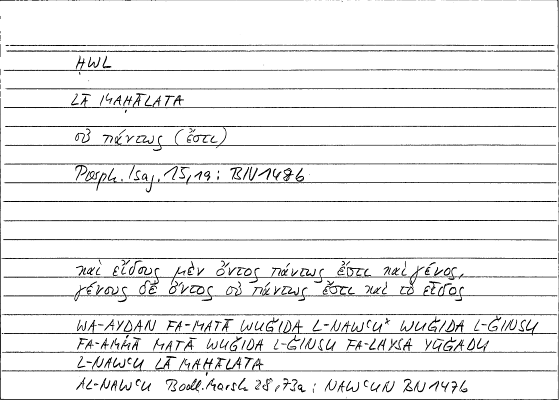 ḤWL
LĀ MAḤĀLATA
οὐ πάντως (ἔστι)
Porph. Isag. 15,19; BN 147b
καὶ εἴδους μὲν ὄντος πάντως ἔστι καὶ γένος,
γένους δὲ ὄντος οὐ πάντως ἔστι καὶ τὸ εἶδος
WA-AYḌAN FA-MATĀ WUǦIDA L-NAWʿU* WUǦIDA L-ǦINSU
FA-AMMĀ MATĀ WUǦIDA L-ǦINSU FA-LAYSA YŪǦADU
L-NAWʿU LĀ MAḤĀLATA
AL-NAWʿU Bodl. Marsh 28, 73a; NAWʿUN BN 147b